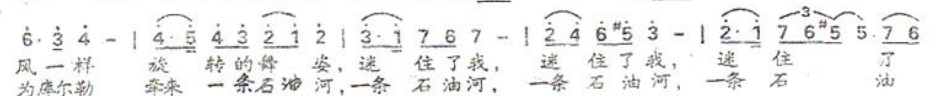 6· 3 4 - | 4·5 4 3 2 1 2 | 3·1 7 6 7 - | 2 4 6 #5 3 - | 2·1 7 6 #5 5· 7 6
3
风一样 旋 转的舞 姿，迷 住了我， 迷 住了我， 迷 住 了
为库尔勒 牵来 一条石油河，一条 石油河， 一条石油河， 一条 石 油